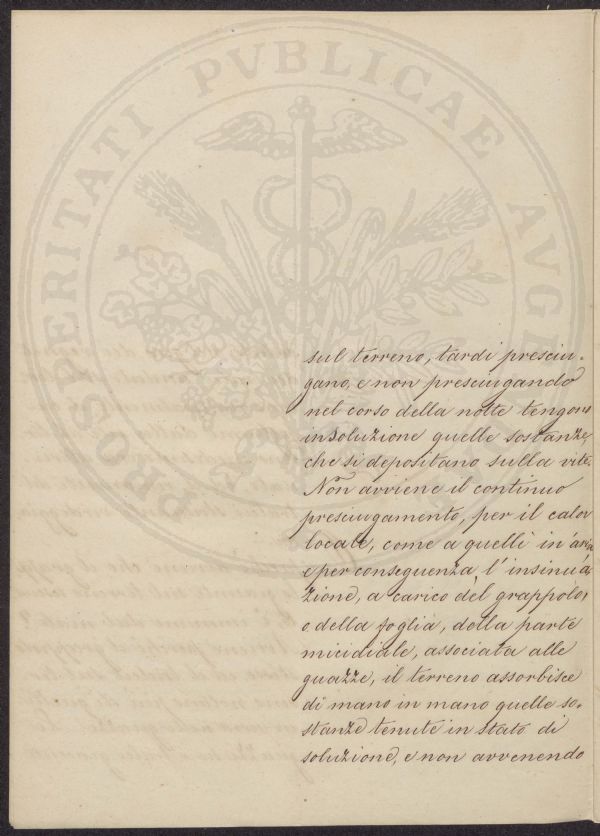 PROSPERITATI PVBLICAE AVGE
sul terreno, tardi presciu-
gano, e non presciugando
nel corso della notte tengono
in soluzione quelle sostanze,
che si depositano sulla vite.
Non avviene il continuo
presciugamento, per il calor
locale, come a quelli in aria
e per conseguenza, l'insinua-
zione, a carico del grappolo,
o della foglia, dolla parte
micidiale, associata alle
guazze, il terreno assorbisce
di mano in mano quelle so-
stanze tenute in stato di
soluzione, e non avvenendo